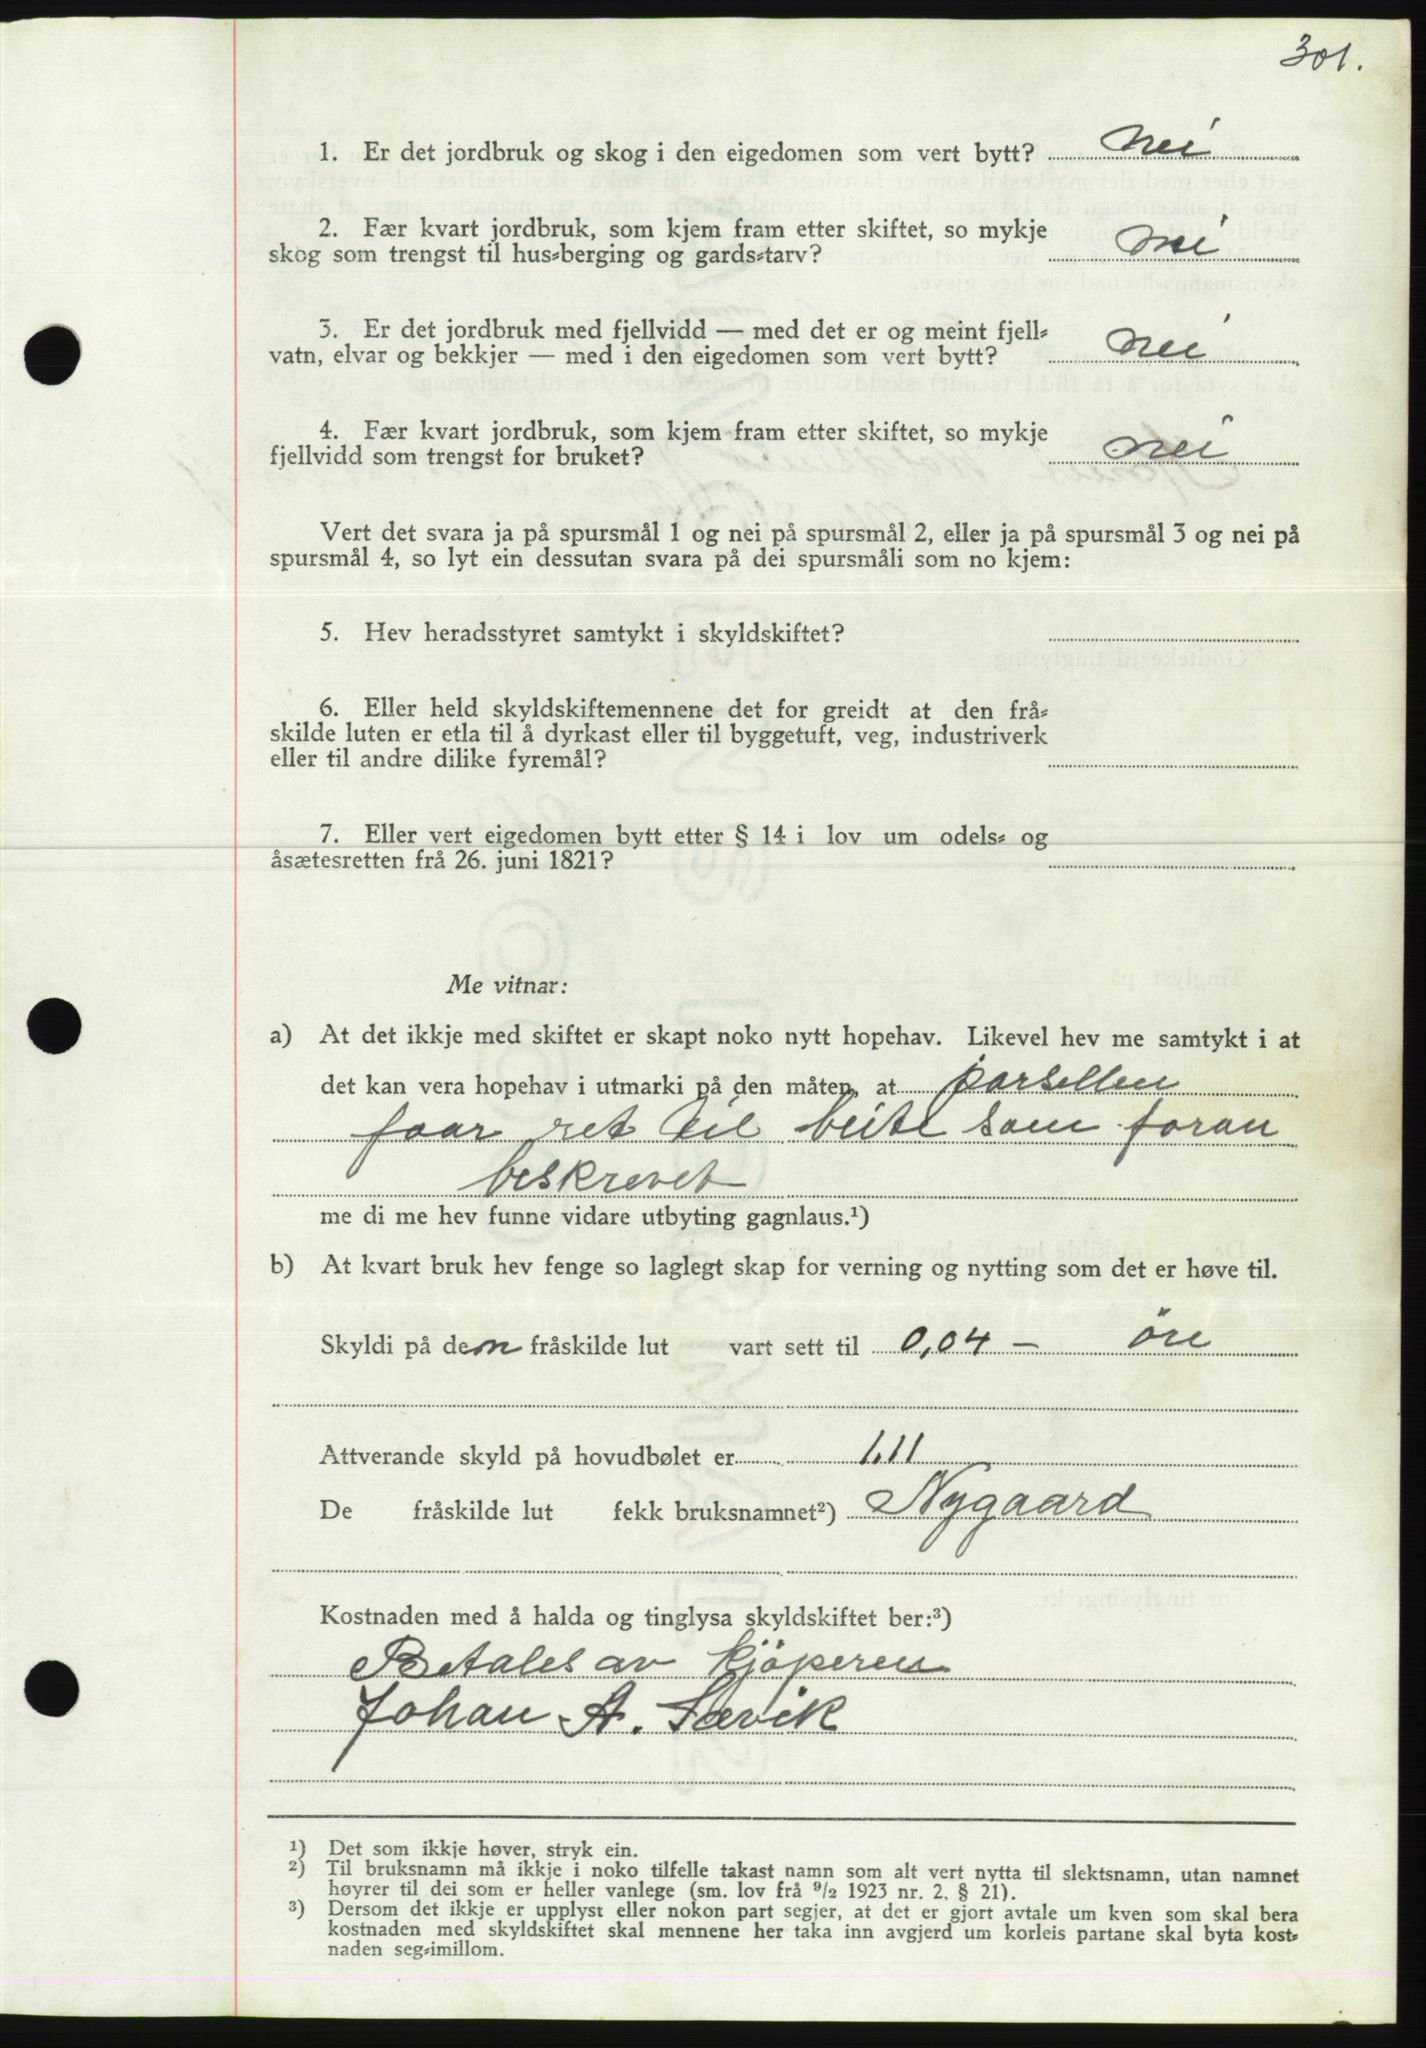 301.
1. Er det jordbruk og skog i den eigedomen som vert bytt? nei
2. Fær kvart jordbruk, som kjem fram etter skiftet, so mykje
skog som trengst til hus⸗berging og gards⸗tarv? nei
3. Er det jordbruk med fjellvidd — med det er og meint fjell⸗
vatn, elvar og bekkjer — med i den eigedomen som vert bytt? nei
4. Fær kvart jordbruk, som kjem fram etter skiftet, so mykje
fjellvidd som trengst for bruket? nei
Vert det svara ja på spursmål 1 og nei på spursmål 2, eller ja på spursmål 3 og nei på
spursmål 4, so lyt ein dessutan svara på dei spursmåli som no kjem:
5. Hev heradsstyret samtykt i skyldskiftet?
6. Eller held skyldskiftemennene det for greidt at den frå⸗
skilde luten er etla til å dyrkast eller til byggetuft, veg, industriverk
eller til andre dilike fyremål?
7. Eller vert eigedomen bytt etter § 14 i lov um odels⸗ og
åsætesretten frå 26. juni 1821?
Me vitnar:
a) At det ikkje med skiftet er skapt noko nytt hopehav. Likevel hev me samtykt i at
det kan vera hopehav i utmarki på den måten, at parsellen
faar ret til beite som foran
beskrevet
me di me hev funne vidare utbyting gagnlaus.¹)
b) At kvart bruk hev fenge so laglegt skap for verning og nytting som det er høve til.
Skyldi på den fråskilde lut vart sett til 0,04 – öre
Attverande skyld på hovudbølet er 1.11
De fråskilde lut fekk bruksnamnet²) Nygaard
Kostnaden med å halda og tinglysa skyldskiftet ber:³)
Betales av kjöperen
Johan A. Sævik
¹) Det som ikkje høver, stryk ein.
²) Til bruksnamn må ikkje i noko tilfelle takast namn som alt vert nytta til slektsnamn, utan namnet
høyrer til dei som er heller vanlege (sm. lov frå ⁹/₂ 1923 nr. 2, § 21).
³) Dersom det ikkje er upplyst eller nokon part segjer, at det er gjort avtale um kven som skal bera
kostnaden med skyldskiftet skal mennene her taka inn avgjerd um korleis partane skal byta kost⸗
naden seg⸗imillom.